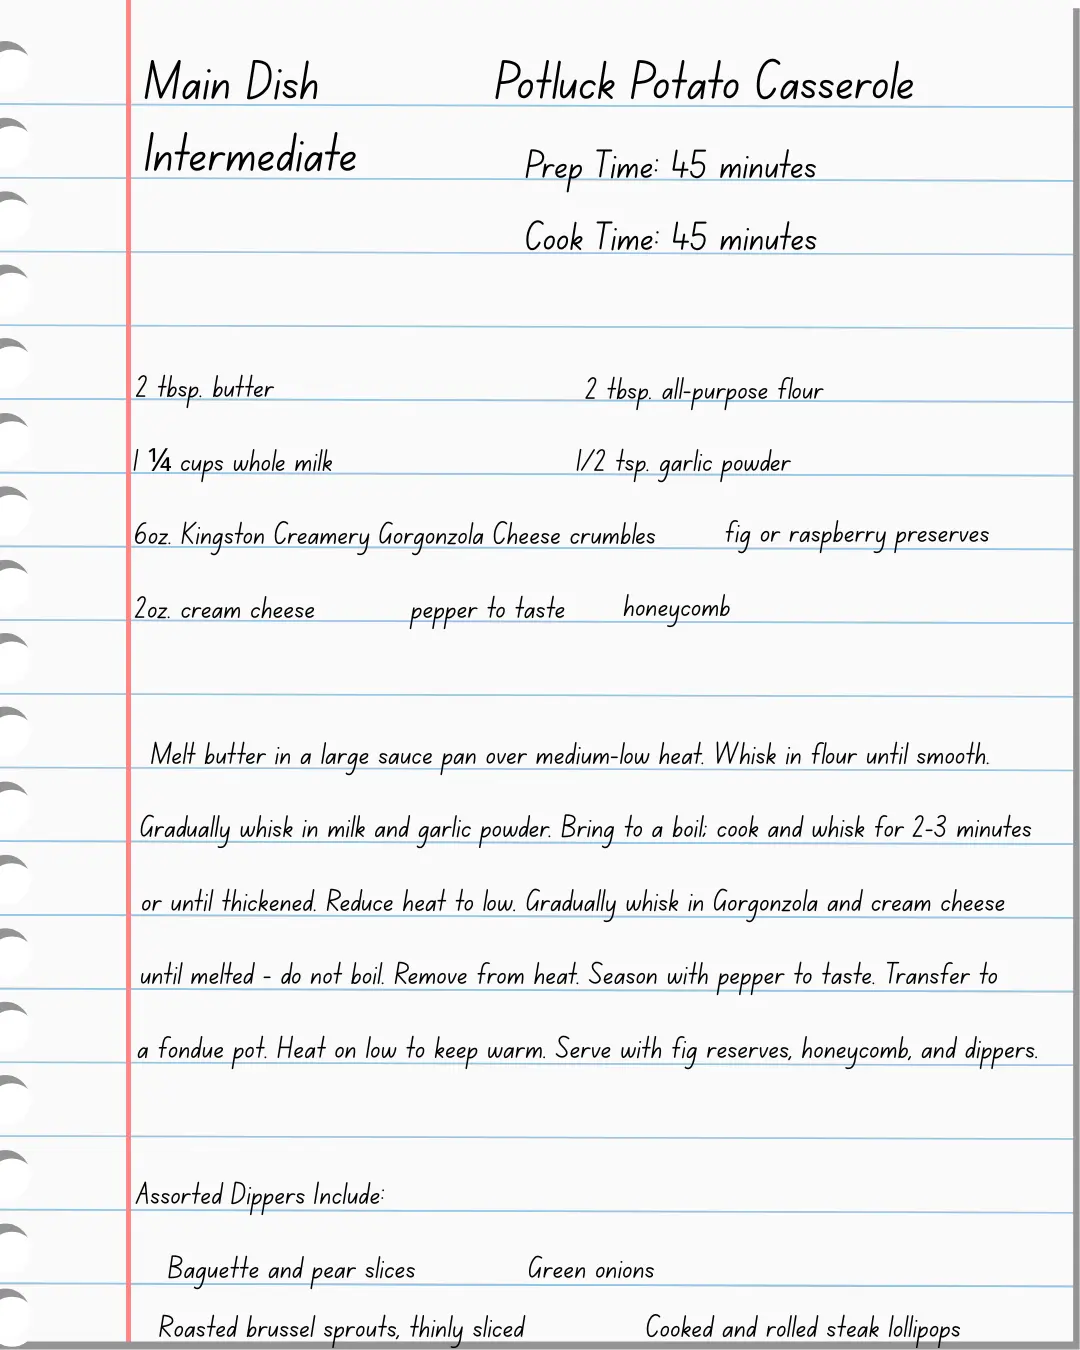 Main Dish Potluck Potato Casserole
Intermediate Prep Time: 45 minutes
Cook Time: 45 minutes
2 tbsp. butter 2 tbsp. all-purpose flour
1 ¼ cups whole milk 1/2 tsp. garlic powder
6oz. Kingston Creamery Gorgonzola Cheese crumbles fig or raspberry preserves
2oz. cream cheese pepper to taste honeycomb
Melt butter in a large sauce pan over medium-low heat. Whisk in flour until smooth.
Gradually whisk in milk and garlic powder. Bring to a boil; cook and whisk for 2-3 minutes
or until thickened. Reduce heat to low. Gradually whisk in Gorgonzola and cream cheese
until melted - do not boil. Remove from heat. Season with pepper to taste. Transfer to
a fondue pot. Heat on low to keep warm. Serve with fig reserves, honeycomb, and dippers.
Assorted Dippers Include:
Baguette and pear slices Green onions
Roasted brussel sprouts, thinly sliced Cooked and rolled steak lollipops